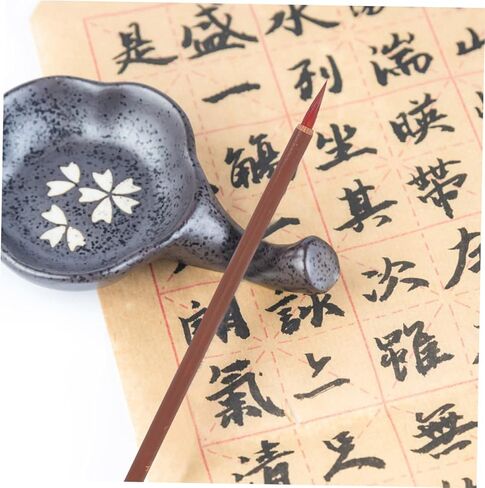 湍暎帶左
水列坐其次雖無
盛一觴一詠亦足
是朗氣清